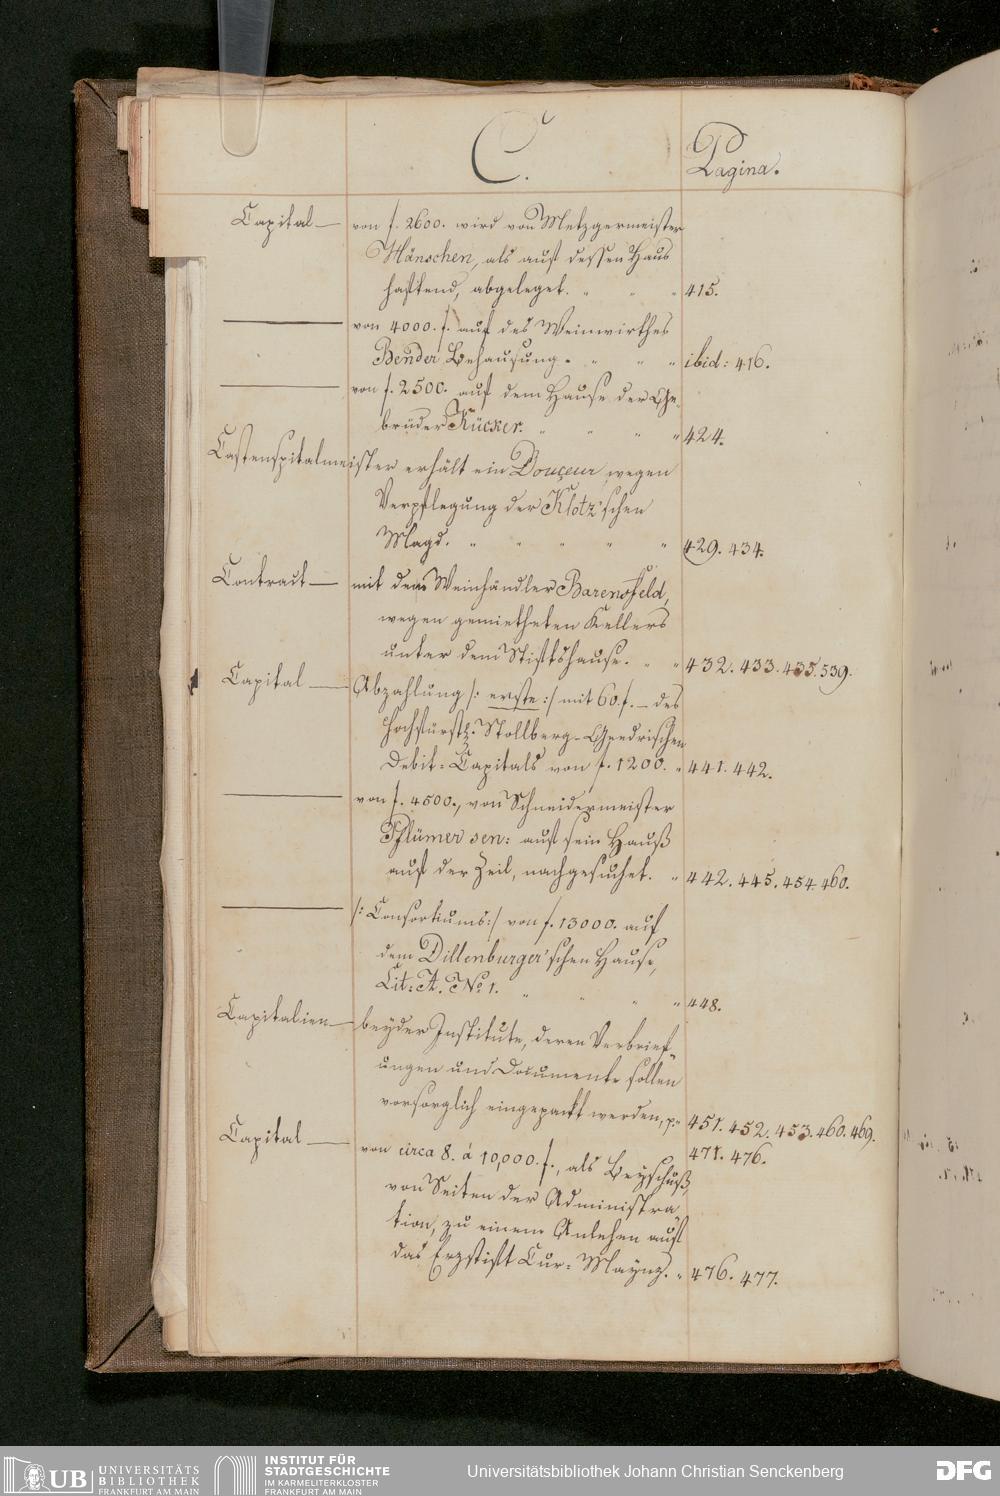 C.
Pagina.
Capital — von f. 2600. wird von Metzgermeister
Hänschen, als auf dessen Haus
haftend, abgeleget. " " " 415.
——— von 4000. f. auf des Weinwirthes
Bender Behausung. " " " ibid: 416.
——— von f. 2500. auf dem Hause der Ge-
brüder Rücker. " " " " 424.
Castenspitalmeister erhält ein Douçeur wegen
Verpflegung der Klotz'schen
Magd. " " " " " 429. 434.
Contract — mit dem Weinhändler Barensfeld,
wegen gemietheten Kellers
unter dem Stiftshause. " " 432. 433. 435. 539.
Capital — Abzahlung /: erste :/ mit 60. f. — des
Hochfürstl. Stollberg-Geudrischen
Debit-Capitals von f. 1200. " 441. 442.
——— von f. 4500., von Schneidermeister
Pflümer sen: auf sein Hauß
auf der Zeil, nachgesuchet. " 442. 445. 454. 460.
——— /: Consortiums :/ von f. 13000. auf
dem Dillenburger'schen Hause,
Lit: A. No. 1. " " " " 448.
Capitalien — beyder Institute, deren Verbrief-
ungen und Documente sollen
vorsorglich eingepackt werden, p. " 451. 452. 453. 460. 469.
471. 476.
Capital — von circa 8. à 10,000. f., als Beyschuß,
von Seiten der Administra-
tion, zu einem Anlehen auf
das Erzstift Cur-Maynz. " 476. 477.
UB UNIVERSITÄTS
BIBLIOTHEK
FRANKFURT AM MAIN
INSTITUT FÜR
STADTGESCHICHTE
IM KARMELITERKLOSTER
FRANKFURT AM MAIN
Universitätsbibliothek Johann Christian Senckenberg
DFG